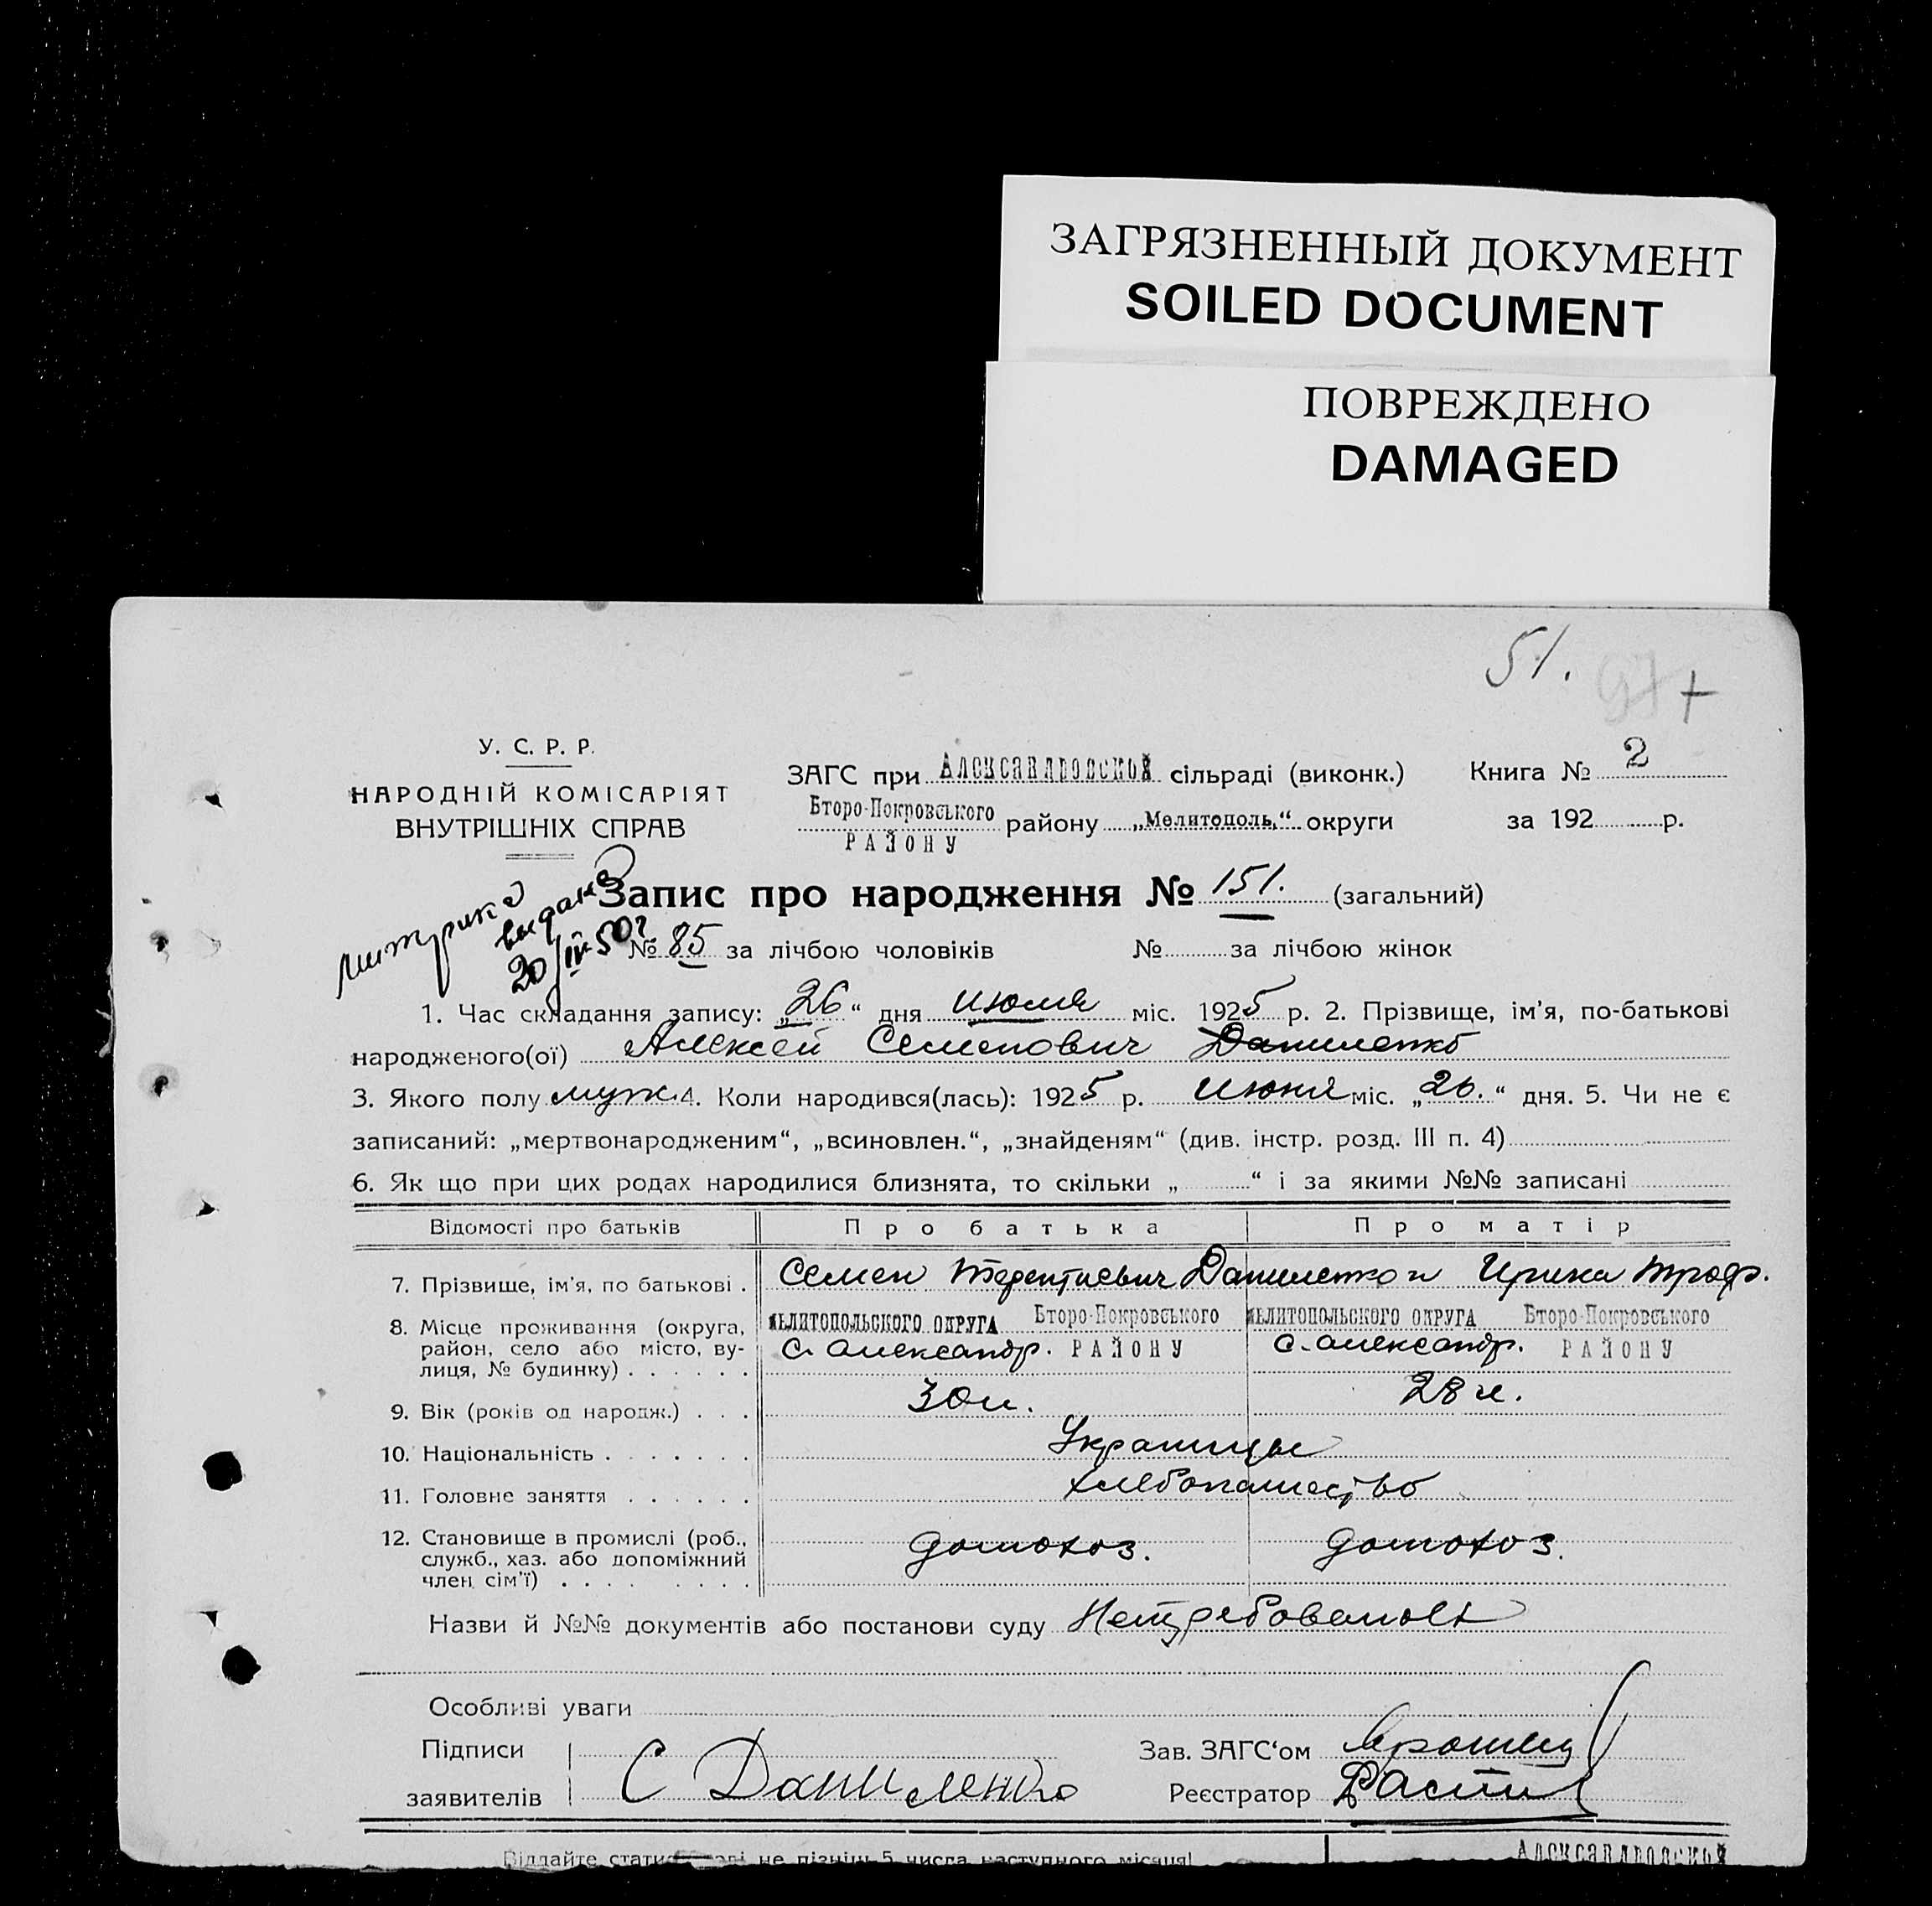 ЗАГРЯЗНЕННЫЙ ДОКУМЕНТ
SOILED DOCUMENT
ПОВРЕЖДЕНО
DAMAGED
51.
У. С. Р. Р.
НАРОДНІЙ КОМІСАРІЯТ
ВНУТРІШНІХ СПРАВ
ЗАГС при Александровской сільраді (виконк.) Книга № 2
Второ-Покровського району „Мелитополь,“ округи за 192 р.
РАЙОНУ
Запис про народження № 151. (загальний)
выдана
20/IV 50 г
№ 85 за лічбою чоловіків № за лічбою жінок
1. Час складання запису: „26“ дня июля міс. 1925 р. 2. Прізвище, ім'я, по-батькові
народженого(ої) Алексей Семенович Даниленко
3. Якого полу муж. 4. Коли народився(лась): 1925 р. Июня міс. „26.“ дня. 5. Чи не є
записаний: „мертвонародженим“, „всиновлен.“, „знайденям“ (див. інстр. розд. III п. 4)
6. Як що при цих родах народилися близнята, то скільки „ “ і за якими №№ записані
Відомості про батьків Про батька Про матір
7. Прізвище, ім'я, по батькові . Семен Терентиевич Даниленко и Ирина Троф.
8. Місце проживання (округа, район, село або місто, вулиця, № будинку) . . . . . . МЕЛИТОПОЛЬСКОГО ОКРУГА Второ-Покровського РАЙОНУ с. Александр. МЕЛИТОПОЛЬСКОГО ОКРУГА Второ-Покровського РАЙОНУ с. Александр.
9. Вік (років од народж.) . . . 30 л. 28 л.
10. Національність . . . . . . . Украинцы
11. Головне заняття . . . . . . хлебопашество
12. Становище в промислі (роб., служб., хаз. або допоміжний член сім'ї) . . . . . . . . домохоз. домохоз.
Назви й №№ документів або постанови суду Нетребовалось
Особливі уваги
Підписи
заявителів С Даниленко
Зав. ЗАГС‘ом
Реєстратор
не пізніш 5 числа наступного місяця!
Александровской